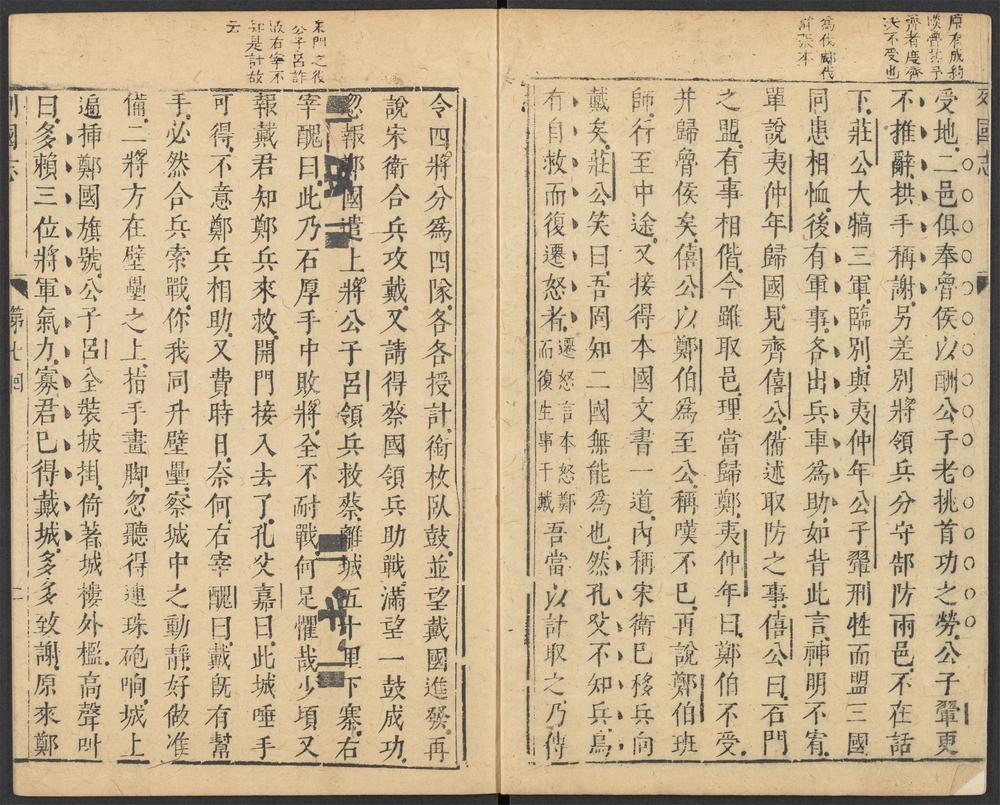 原有成約
齊者慶齊
決不受也
為伐郕伐
許張本
列國志
受地二邑俱奉魯侯以酬公子老挑首功之勞公子翬更
不推辭拱手稱謝另差別將領兵分守郜防兩邑不在話
下莊公大犒三軍臨別與夷仲年公子翬刑牲而盟三國
同患相恤後有軍事各出兵車為助如背此言神明不宥
單說夷仲年歸國見齊僖公備述取防之事僖公曰石門
之盟有事相偕今雖取邑理當歸鄭夷仲年曰鄭伯不受
并歸魯侯矣僖公以鄭伯為至公稱嘆不已再說鄭伯班
師行至中途又接得本國文書一道內稱宋衛已移兵向
戴矣莊公笑曰吾固知二國無能為也然孔父不知兵烏
有自救而復遷怒者遷怒言本怒鄭而復生事于戴吾當以計取之乃傳
東門之役
公子呂詐
敗右宰不
知是計故
云
令四將分為四隊各各授計銜枚臥鼓並望戴國進發再
說宋衛合兵攻戴又請得蔡國領兵助戰滿望一鼓成功
忽報鄭國遣上將公子呂領兵救蔡離城五十里下寨右
宰醜曰此乃石厚手中敗將全不耐戰何足懼哉少頃又
報戴君知鄭兵來救開門接入去了孔父嘉曰此城唾手
可得不意鄭兵相助又費時日奈何右宰醜曰戴既有幫
手必然合兵索戰你我同升壁壘察城中之動靜好做准
備二將方在壁壘之上指手畫脚忽聽得連珠砲响城上
遍挿鄭國旗號公子呂全裝披掛倚著城樓外檻高聲叫
曰多賴三位將軍氣力寡君已得戴城多多致謝原來鄭
列國志
第七回
二